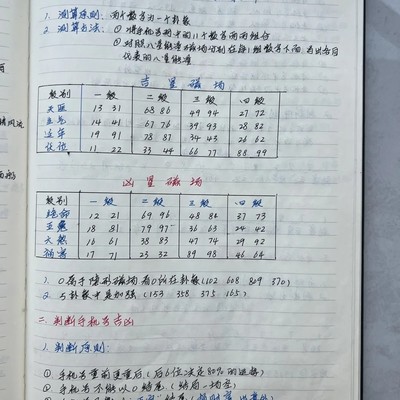 1. 测算原则: 两个数字为一个卦数
2. 测算方法: ① 将手机号码中的11个数字两两组合
② 对照八星能量磁场分别在每1组数字下面写出各自
代表的八星能量
吉星磁场
级别 一级 二级 三级 四级
天医 13 31 68 86 49 94 27 72
生气 14 41 67 76 39 93 28 82
延年 19 91 78 87 34 43 26 62
伏位 11 22 33 44 66 77 88 99
凶星磁场
级别 一级 二级 三级 四级
绝命 12 21 69 96 48 84 37 73
五鬼 18 81 79 97 36 63 24 42
六煞 16 61 38 83 47 74 29 92
祸害 17 71 23 32 89 98 46 64
1. 0属于隐形磁场有0位在卦数(102 608 809 370)
2. 5卦数中是加强(153 358 375 165)
二. 判断手机号吉凶
1. 判断原则:
① 手机号重前更重后(后6位决定80%的运势)
② 手机号不能以0结尾(结局一场空)